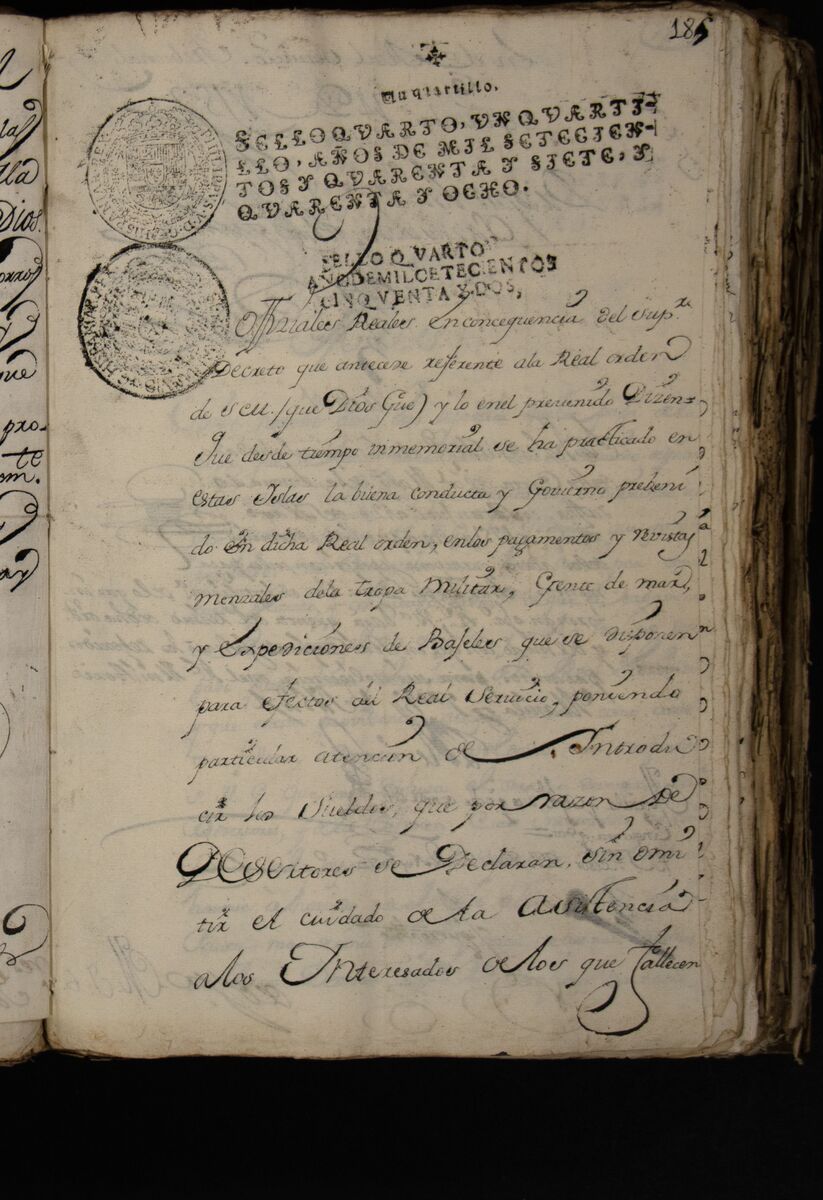 185
Un quartillo.
SELLO QVARTO, VN QVARTI-
LLO, AÑOS DE MIL SETECIEN-
TOS Y QVARENTA Y SIETE, Y
QVARENTA Y OCHO.
SELLO QVARTO
AÑO DE MIL CETECIENTOS
CINQVENTA Y DOS,
Offiziales Reales. En concequencia del sup.r
Decreto que antecese refferente ala Real orden
de S.M. (que Dios Gũe) y lo enel prevenido Dizen=
Que desde tiempo inmemorial se ha practicado en
estas Islas la buena conducta y Govierno preveni
do en dicha Real orden, enlos pagamentos y revistas
menzales dela tropa Militar, Gente de mar,
y Expediciones de Baseles que se disponen
para efectos del Real Servicio, poniendo
particular atencion de Introdu
cir los Sueldos, que por razon de
Desertores se Declaran, sin omi
tir el cuidado de la asistencia
a los Interesados de los que fallecen
PHILIPVS V D G